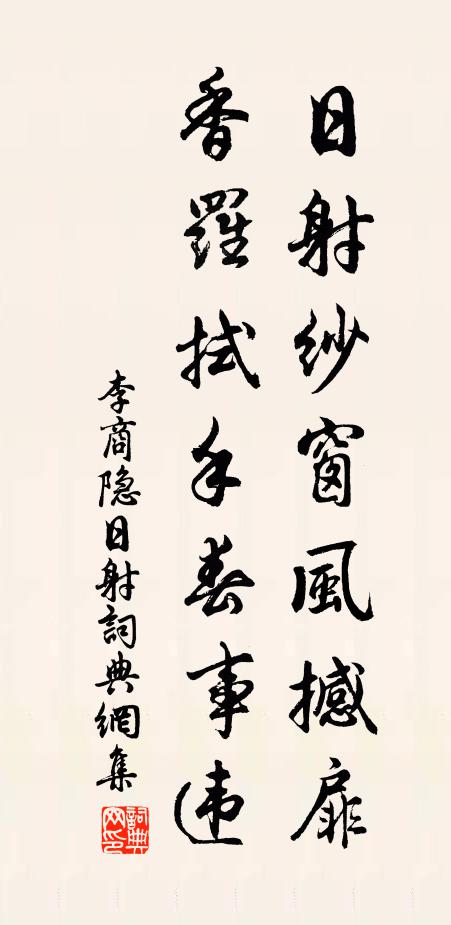 日射紗窗風撼扉
香羅拭手春事違
李商隐日射詞典網集
詞典網印